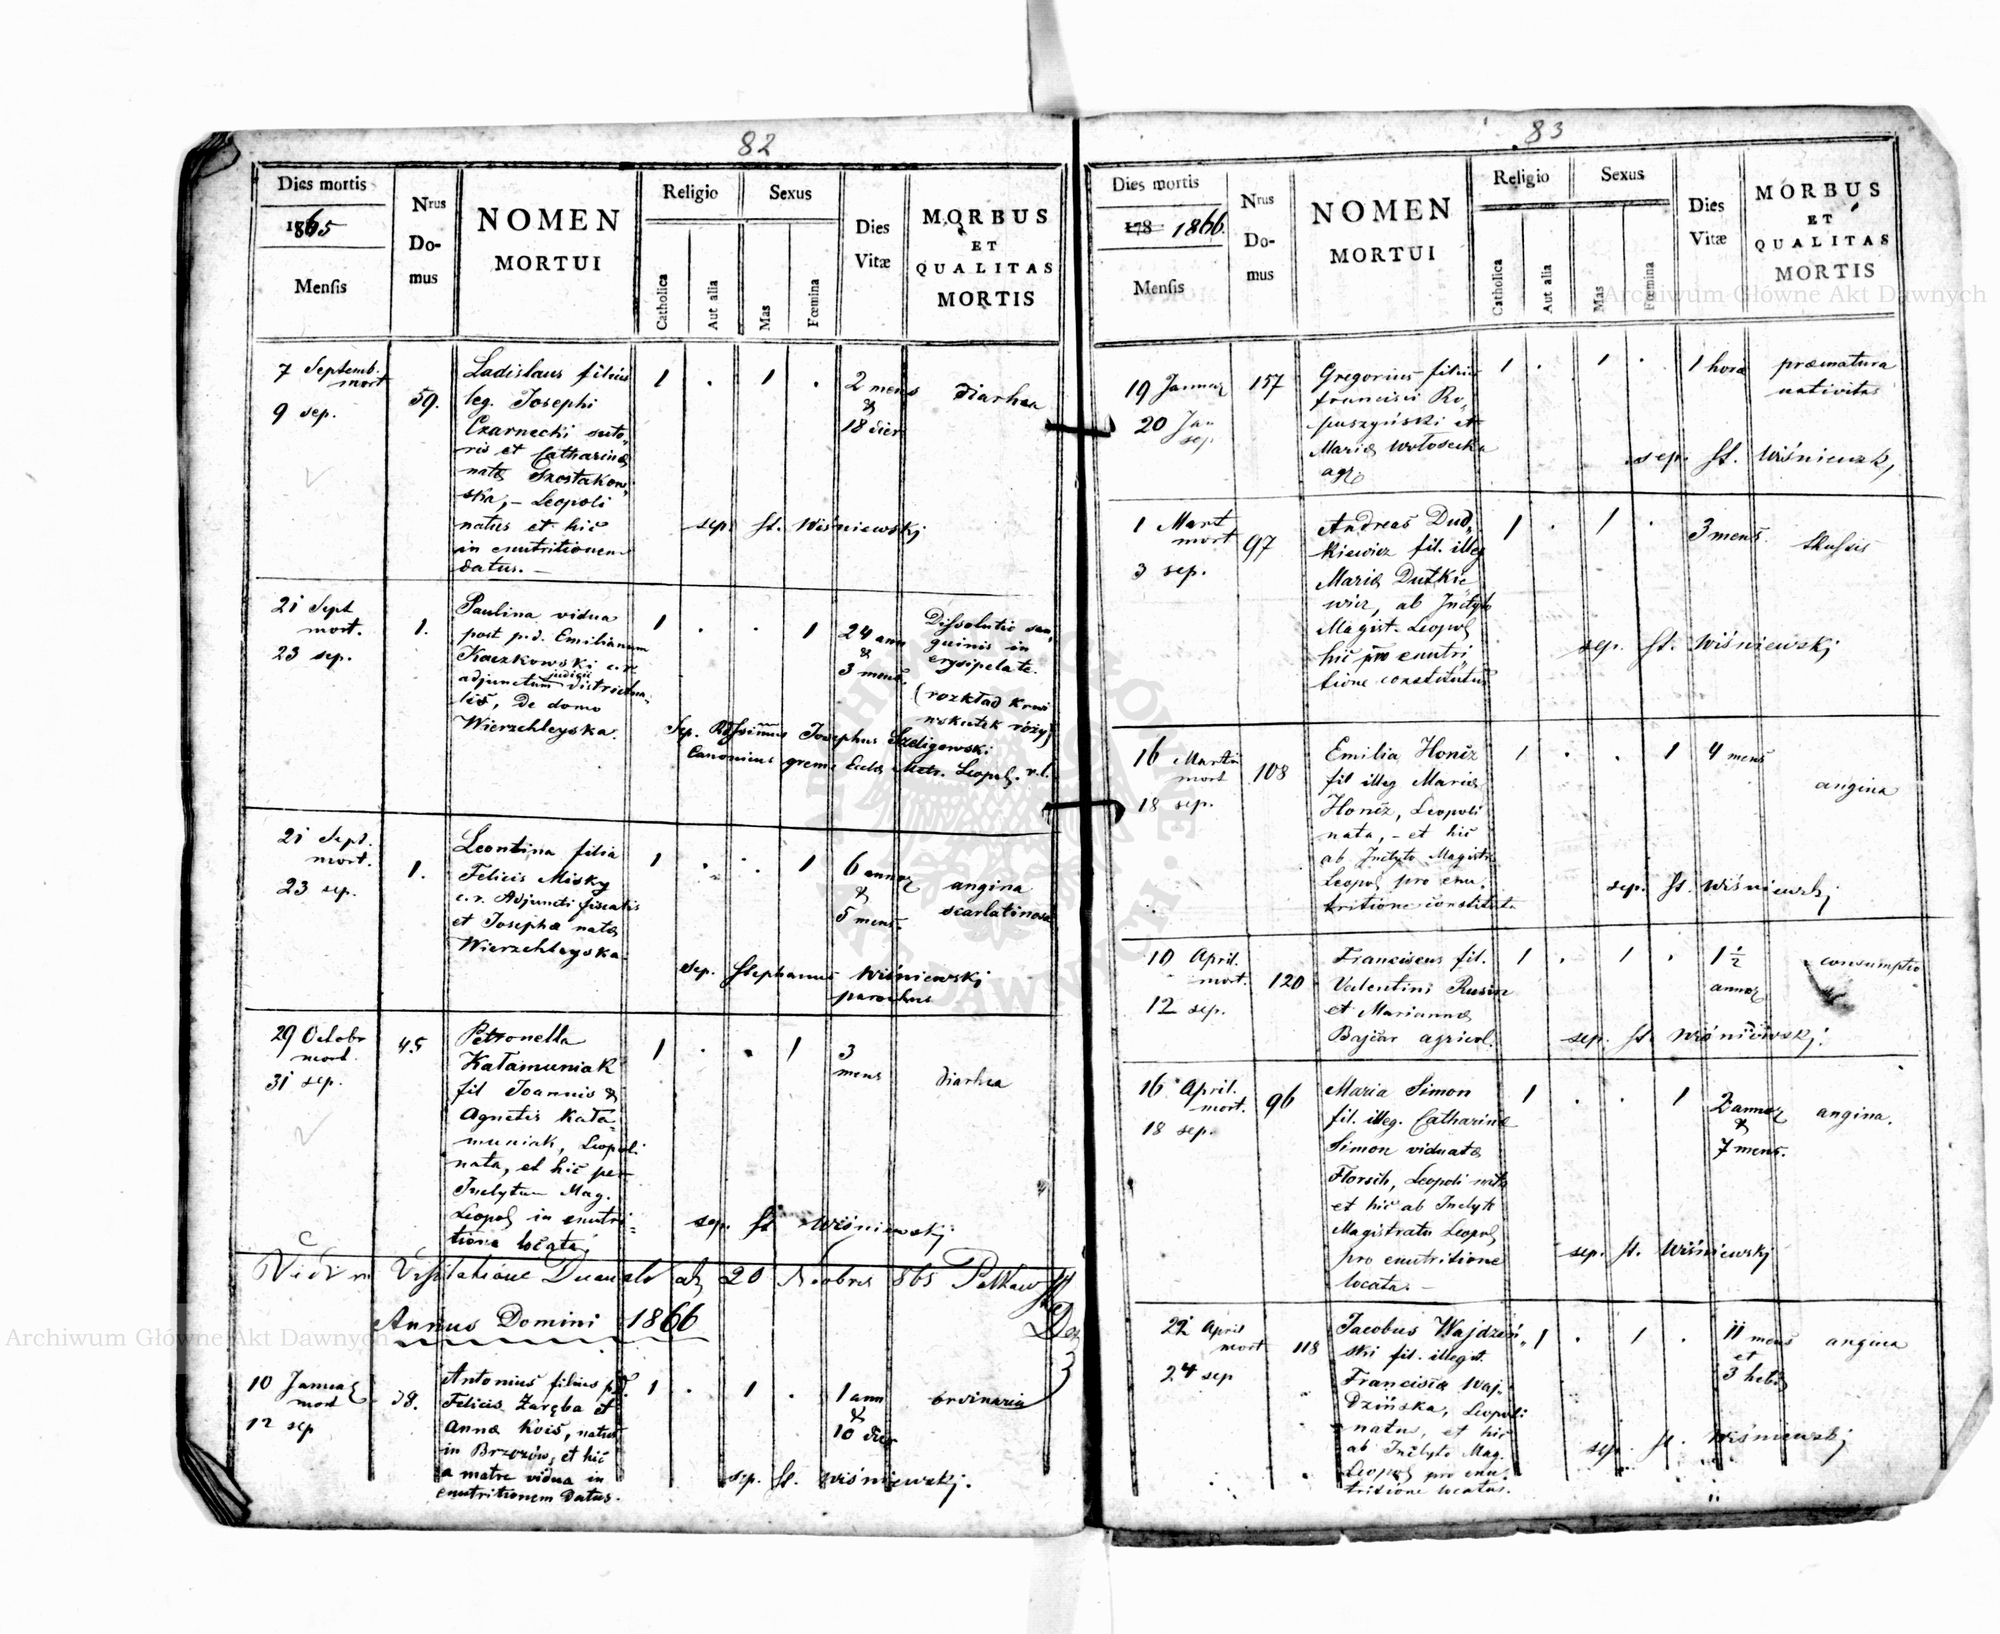 82
Dies mortis
1865
Mensis
Nrus
Do-
mus
NOMEN
MORTUI
Religio
Catholica
Aut alia
Sexus
Mas
Fœmina
Dies
Vitæ
MORBUS
ET
QUALITAS
MORTIS
7 Septemb.
mort
9 sep.
59.
Ladislaus filius
leg. Josephi
Czarnecki suto-
ris et Catharinæ
natæ Szostakow-
ska, – Leopoli
natus et hic
in enutritionem
datus. –
1 . 1 .
2 mens
&
18 dier
diarhea
sep. St. Wiśniewski
21 Sept
mort.
23 sep.
1.
Paulina vidua
post p.d. Emilianum
Kaczkowski c.r.
adjunctum judicii districtua-
lis, de domo
Wierzchleyska.
1 . . 1
24 ann
&
3 mens.
Dissolutio san-
guinis in
erysipelate.
(rozkład krwi
wskutek róży)
Sep. Rssimus Josephus Szeligowski
Canonicus grem. Eccle Metr. Leopol. r.l.
21 Sept.
mort.
23 sep.
1.
Leontina filia
Felicis Misky
c.r. Adjuncti fiscalis
et Josepha natæ
Wierzchleyska
1 . . 1
6 annor
&
5 mens.
angina
scarlatinosa
sep. Stephanus Wiśniewski
parochus
29 Octobr
mort.
31 sep.
45
Petronella
Kałamuniak
fil Joannis &
Agnetis Kała-
muniak, Leopoli
nata, et hic per
Inclytum Mag.
Leopol in enutri-
tione locata.
1 . . 1
3
mens
diarhea
sep. St Wiśniewski
Vidi in Visitatione Decanali d 20 Nov̄bris 865
Annus Domini 1866
10 Januar
mort
12 sep
38.
Antonius filius p.d.
Felicis Zaręba et
Annæ Kois, natus
in Brzozów, et hic
a matre vidua in
enutritionem datus.
1 . 1 .
1 ann
&
10 dier
ordinaria
sep. St. Wiśniewski.
83
Dies mortis
178 1866.
Mensis
Nrus
Do-
mus
NOMEN
MORTUI
Religio
Catholica
Aut alia
Sexus
Mas
Fœmina
Dies
Vitæ
MORBUS
ET
QUALITAS
MORTIS
19 Januar
20 Jan
sep.
157
Gregorius filius
Francisci Ro-
puszyński et
Mariæ Wołosecka
agr.
1 . 1 .
1 hora
præmatura
nativitas
sep. St. Wiśniewski
1 Mart
mort
3 sep.
97
Andreas Dud-
kiewicz fil. illeg
Mariæ Dutkie
wicz, ab Inclyto
Magist. Leopol
hic pro enutri
tione constitutus
1 . 1 .
3 mens.
thussis
sep. St. Wiśniewski
16 Martii
mort
18 sep.
108
Emilia Honiz
fil illeg Mariæ
Honiz, Leopoli
nata, – et hic
ab Inclyto Magistr
Leopol pro enu-
tritione constituta
1 . . 1
4 mens
angina
sep. St. Wiśniewski
10 April.
mort.
12 sep.
120
Franciscus fil.
Valentini Rusin
et Mariannæ
Bajcar agricol.
1 . 1 .
1 1/2
annor
consumptio
sep. St. Wiśniewski.
16 April.
mort.
18 sep.
96
Maria Simon
fil. illeg. Catharinæ
Simon viduatæ
Florsch, Leopoli nata
et hic ab Inclyto
Magistratu Leopol
pro enutritione
locata. –
1 . . 1
2 annor
&
7 mens.
angina.
sep. St. Wiśniewski
22 April
mort
24 sep
118
Jacobus Wajdziń-
ski fil. illegit.
Francisca Waj-
dzińska, Leopoli
natus, et hic
ab Inclyto Mag.
Leopol pro enu-
tritione locatus.
1 . 1 .
11 mens
et
3 hebd
angina
sep. St. Wiśniewski
Archiwum Główne Akt Dawnych
Archiwum Główne Akt Dawnych
ARCHIWUM GŁÓWNE AKT DAWNYCH